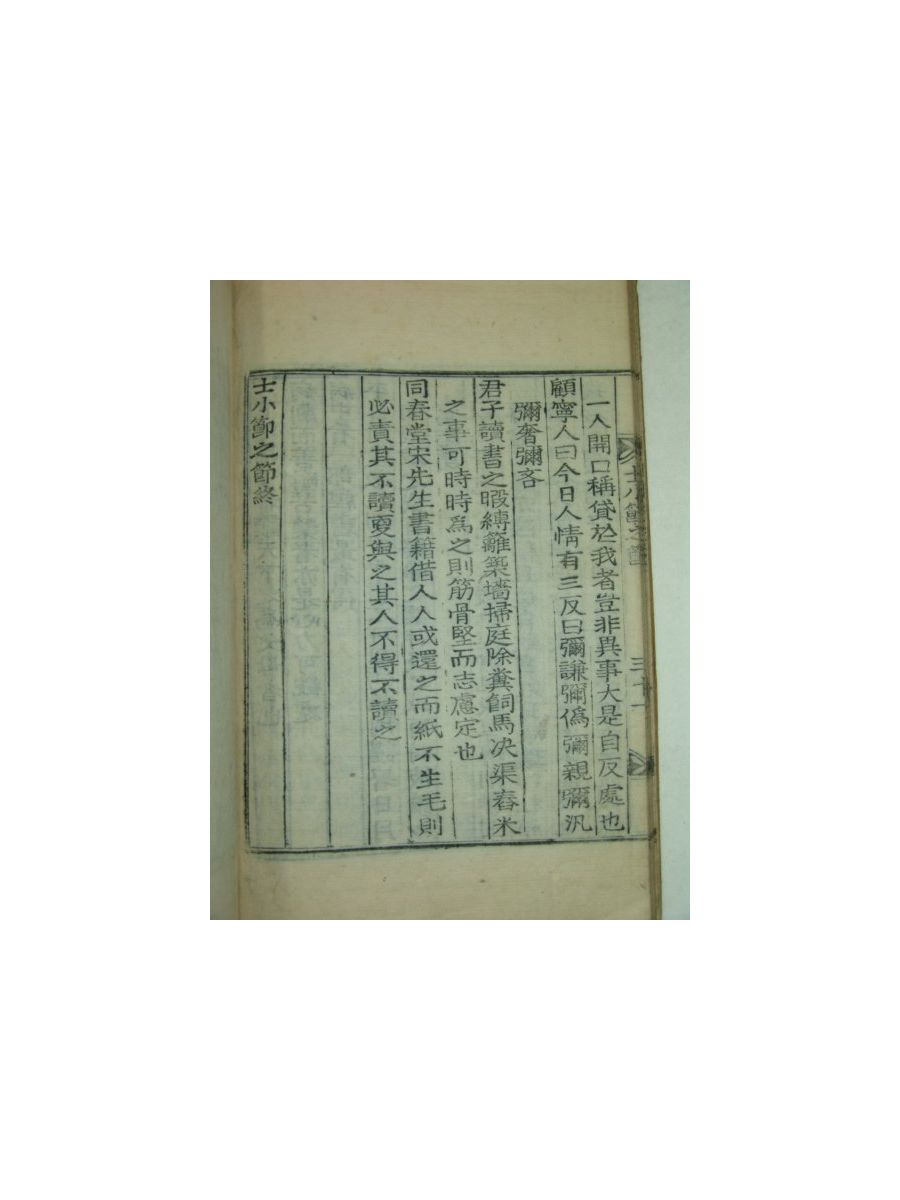 士小節之節
三十一
一人開口稱貸於我者豈非異事大是自反處也
顧寧人曰今日人情有三反曰彌謙彌僞彌親彌汎
彌奢彌吝
君子讀書之暇縛籬築墻掃庭除糞飼馬决渠舂米
之事可時時爲之則筋骨堅而志慮定也
同春堂宋先生書籍借人人或還之而紙不生毛則
必責其不讀更與之其人不得不讀之
士小節之節終